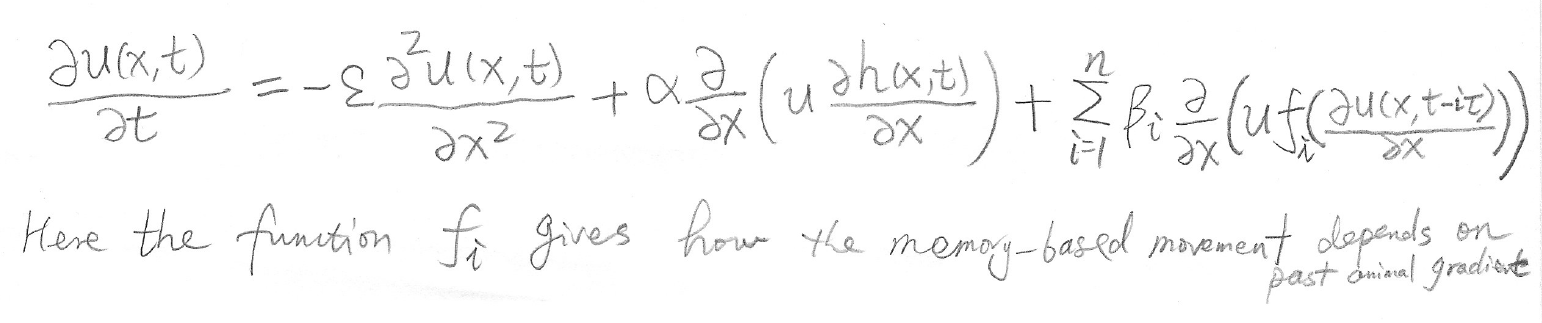 ∂u(x,t)/∂t = -ε ∂²u(x,t)/∂x² + α ∂/∂x (u ∂h(x,t)/∂x) + Σ_{i=1}^{n} β_i ∂/∂x (u f_i(∂u(x,t-iτ)/∂x))
Here the function f_i gives how the memory-based movement depends on
past animal gradient